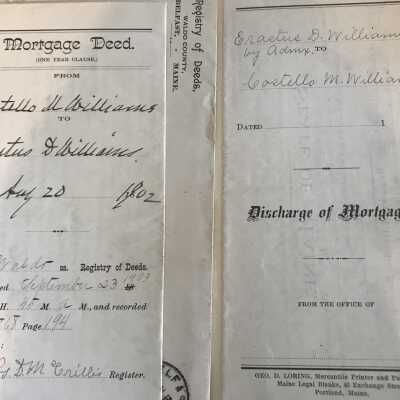 Mortgage Deed.
(ONE YEAR CLAUSE.)
FROM
stello M Williams
TO
stus D Williams.
Aug 20 1902
Waldo ss. Registry of Deeds.
ed September 23
H. 45 M. M., and recorded
Page 194
D. M. Register.
Registry of Deeds,
WALDO COUNTY,
BELFAST, - MAINE.
Erastus D. William
by Admx. TO
Costello M. William
DATED 1
Discharge of Mortgag
FROM THE OFFICE OF
GEO. D. LORING, Mercantile Printer and Pu
Maine Legal Blanks, 45 Exchange Stre
Portland, Maine.